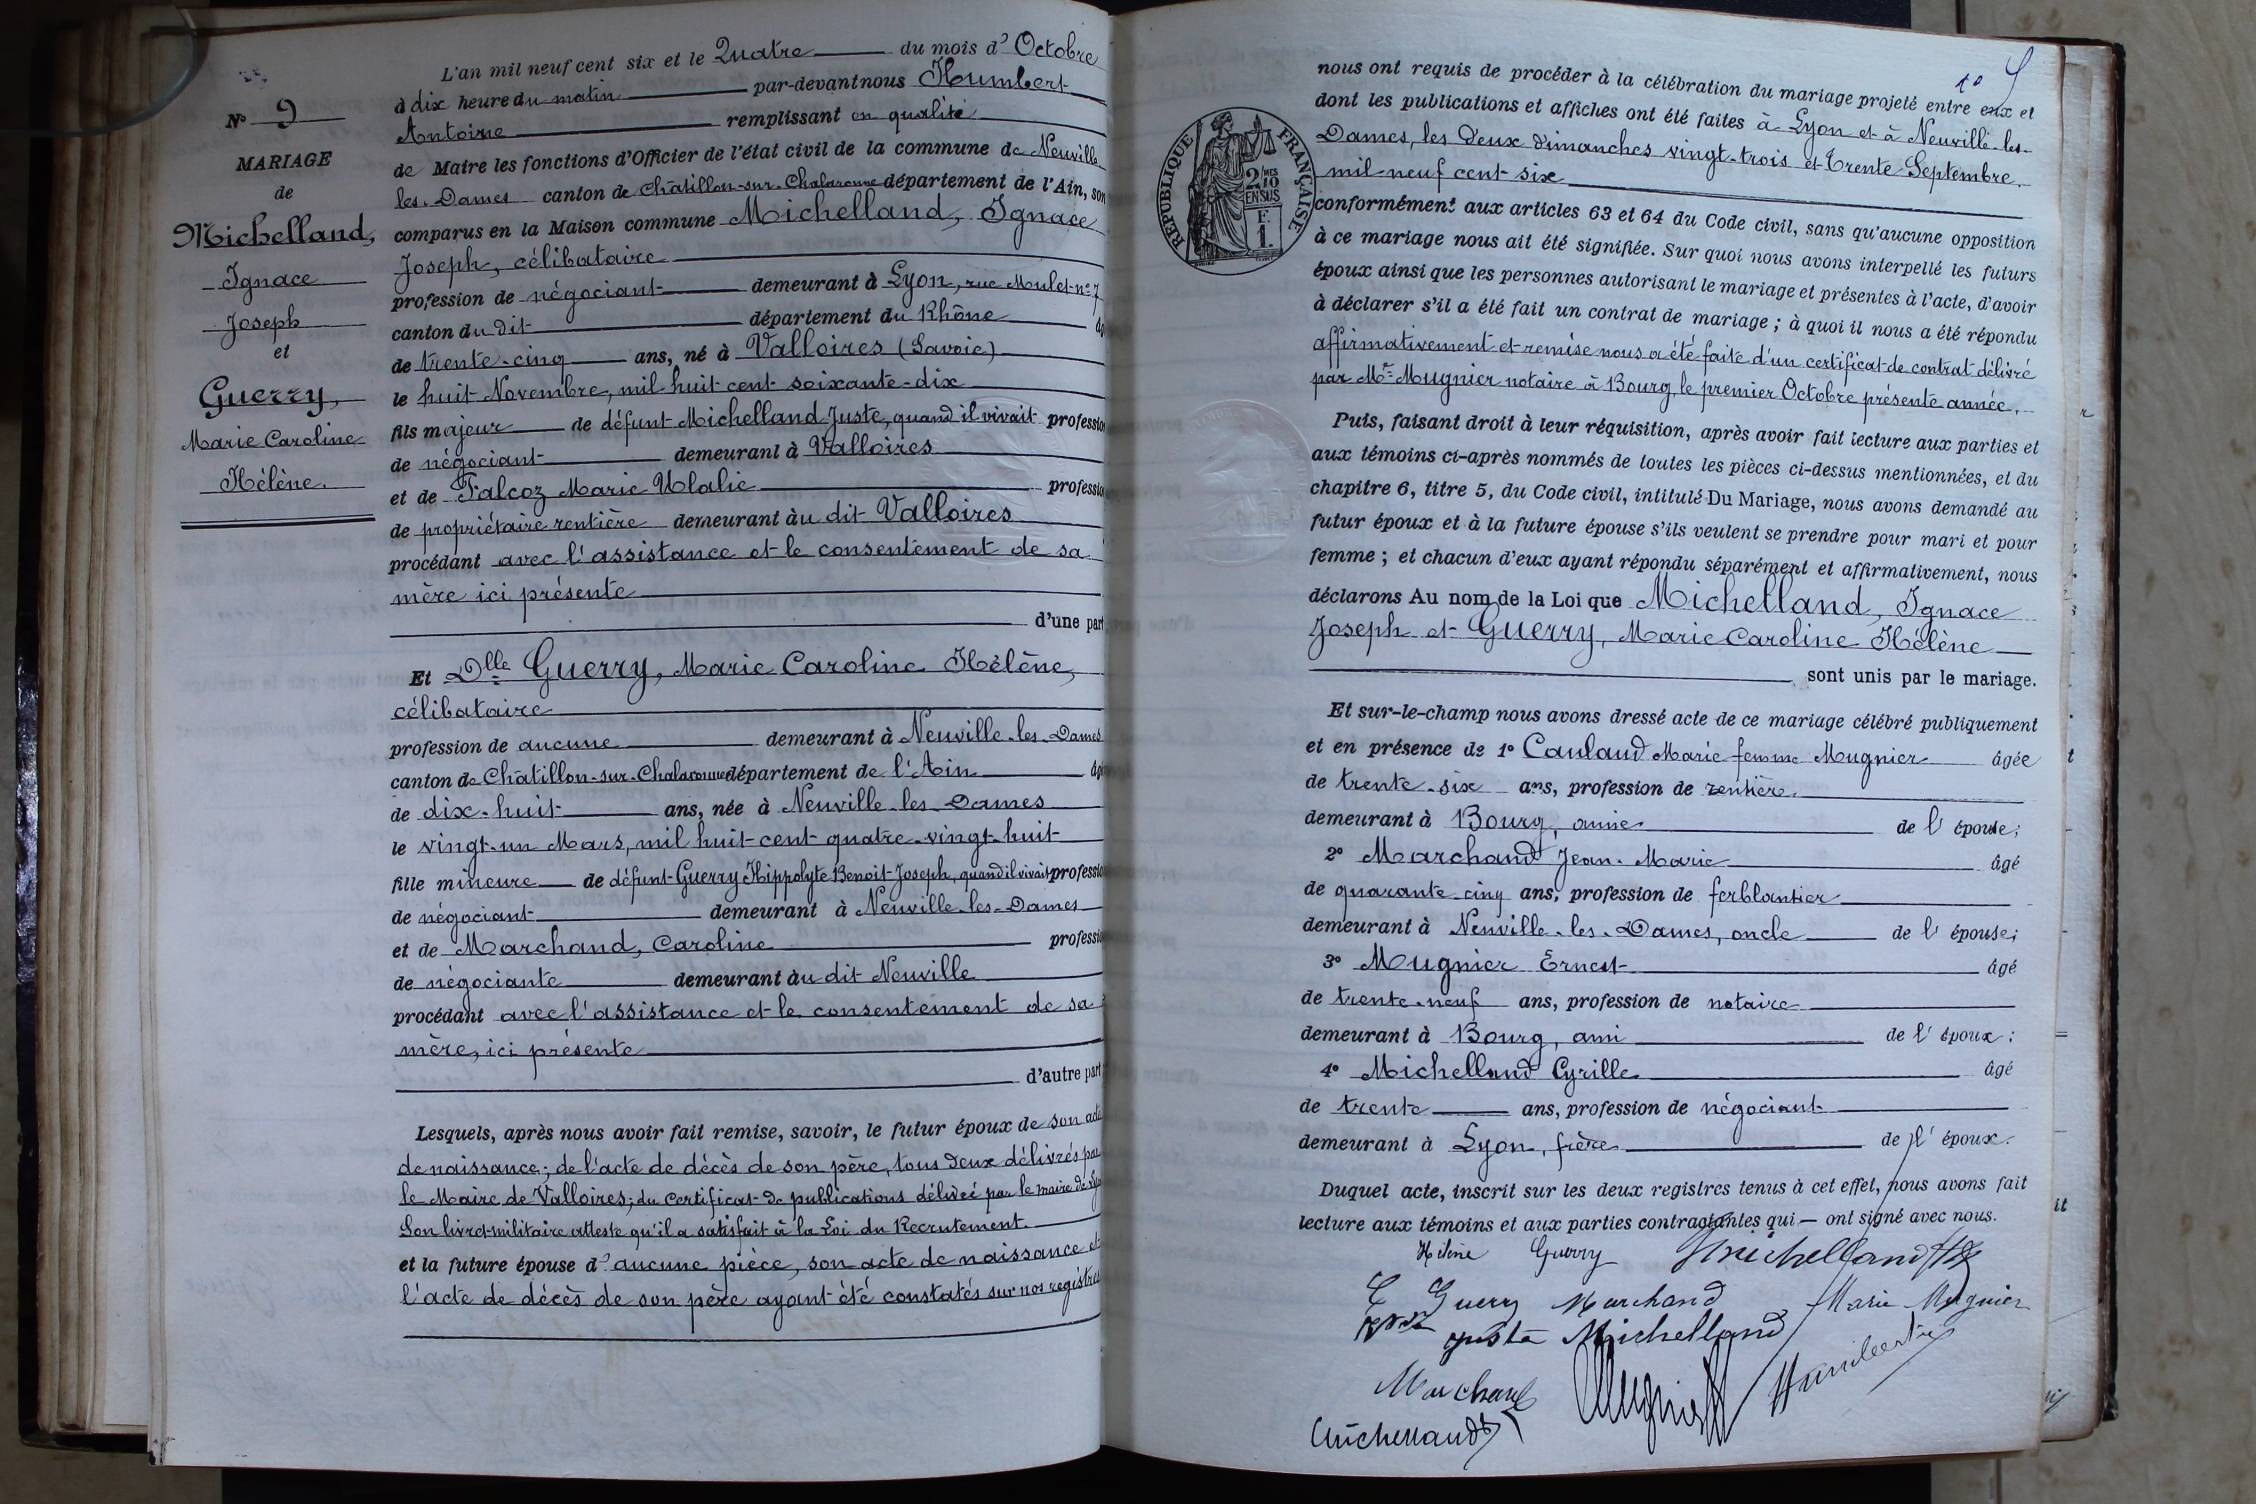 N° 9
MARIAGE
de
Michelland,
Ignace
Joseph
et
Guerry,
Marie Caroline
Hélène.
L'an mil neuf cent six et le Quatre du mois d' Octobre
à dix heure du matin par-devant nous Humbert
Antoine remplissant en qualité
de Maire les fonctions d'Officier de l'état civil de la commune de Neuville
les-Dames canton de Châtillon-sur-Chalaronne département de l'Ain, son
comparus en la Maison commune Michelland, Ignace
Joseph, célibataire
profession de négociant demeurant à Lyon, rue Mulet n° 7
canton du dit département du Rhône âg
de trente-cinq ans, né à Valloires (Savoie)
le huit Novembre, mil huit cent soixante-dix
fils majeur de défunt Michelland Juste, quand il vivait professio
de négociant demeurant à Valloires
et de Falcoz Marie Ulalie professio
de propriétaire rentière demeurant àu dit Valloires
procédant avec l'assistance et le consentement de sa
mère ici présente
d'une part
Et Dlle Guerry, Marie Caroline Hélène,
célibataire
profession de aucune demeurant à Neuville-les-Dames
canton de Châtillon-sur-Chalaronne département de l'Ain âg
de dix-huit ans, née à Neuville-les-Dames
le vingt-un Mars, mil huit cent quatre-vingt-huit
fille mineure de défunt Guerry Hippolyte Benoit-Joseph, quand il vivait professio
de négociant demeurant à Neuville-les-Dames
et de Marchand, Caroline professio
de négociante demeurant àu dit Neuville
procédant avec l'assistance et le consentement de sa
mère, ici présente
d'autre part
Lesquels, après nous avoir fait remise, savoir, le futur époux de son acte
de naissance; de l'acte de décès de son père, tous deux délivrés par
le Maire de Valloires; du certificat de publications délivré par le maire de Lyon
Son livret militaire atteste qu'il a satisfait à la Loi du Recrutement.
et la future épouse d' aucune pièce, son acte de naissance et
l'acte de décès de son père ayant été constatés sur nos registres
10
nous ont requis de procéder à la célébration du mariage projeté entre eux et
dont les publications et affiches ont été faites à Lyon et à Neuville-les-
Dames, les deux dimanches vingt-trois et trente Septembre
mil neuf cent six
conformément aux articles 63 et 64 du Code civil, sans qu'aucune opposition
à ce mariage nous ait été signifiée. Sur quoi nous avons interpellé les futurs
époux ainsi que les personnes autorisant le mariage et présentes à l'acte, d'avoir
à déclarer s'il a été fait un contrat de mariage; à quoi il nous a été répondu
affirmativement et remise nous a été faite d'un certificat de contrat délivré
par Me Mugnier notaire à Bourg, le premier Octobre présente année.
Puis, faisant droit à leur réquisition, après avoir fait lecture aux parties et
aux témoins ci-après nommés de toutes les pièces ci-dessus mentionnées, et du
chapitre 6, titre 5, du Code civil, intitulé Du Mariage, nous avons demandé au
futur époux et à la future épouse s'ils veulent se prendre pour mari et pour
femme; et chacun d'eux ayant répondu séparément et affirmativement, nous
déclarons Au nom de la Loi que Michelland, Ignace
Joseph et Guerry, Marie Caroline Hélène
sont unis par le mariage.
Et sur-le-champ nous avons dressé acte de ce mariage célébré publiquement
et en présence de 1° Caulaud Marie femme Mugnier âgée
de trente-six ans, profession de rentière.
demeurant à Bourg, amie de l'épouse;
2° Marchand Jean-Marie âgé
de quarante-cinq ans, profession de ferblantier
demeurant à Neuville-les-Dames, oncle de l'épouse;
3° Mugnier Ernest âgé
de trente-neuf ans, profession de notaire
demeurant à Bourg, ami de l'époux;
4° Michelland Cyrille âgé
de trente ans, profession de négociant
demeurant à Lyon, frère de l'époux.
Duquel acte, inscrit sur les deux registres tenus à cet effet, nous avons fait
lecture aux témoins et aux parties contractantes qui — ont signé avec nous.
Hélène Guerry JMichelland
C Guerry Marchand Marie Mugnier
juste Michelland
Marchand Mugnier Humbert
Michelland
RÉPUBLIQUE FRANÇAISE
2/10 MES
EN SUS
F.
1.